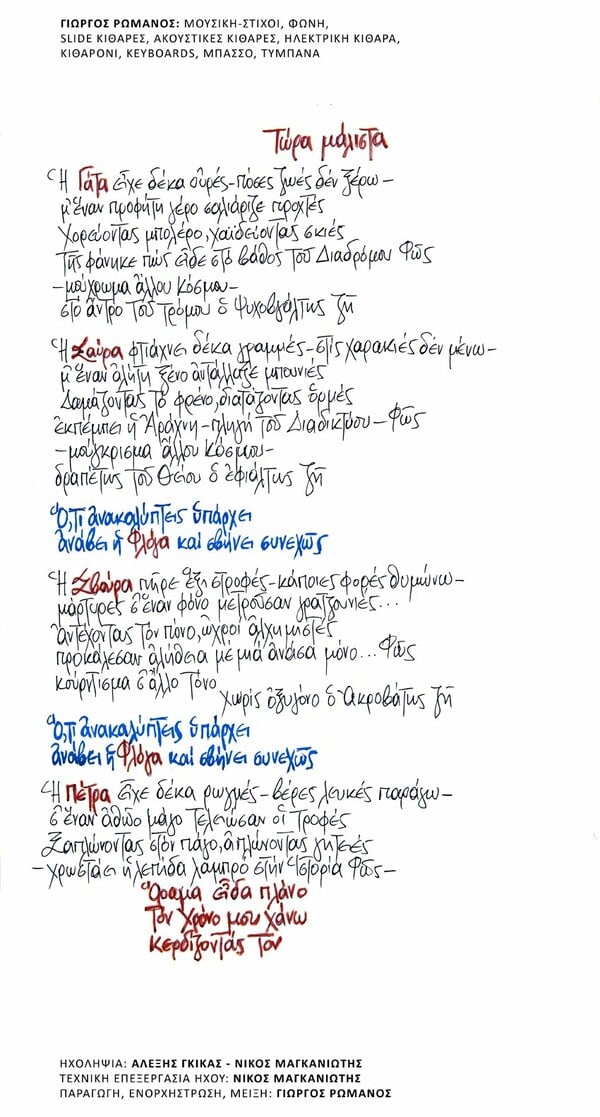 ΓΙΩΡΓΟΣ ΡΩΜΑΝΟΣ: ΜΟΥΣΙΚΗ-ΣΤΙΧΟΙ, ΦΩΝΗ,
SLIDE ΚΙΘΑΡΕΣ, ΑΚΟΥΣΤΙΚΕΣ ΚΙΘΑΡΕΣ, ΗΛΕΚΤΡΙΚΗ ΚΙΘΑΡΑ,
ΚΙΘΑΡΟΝΙ, KEYBOARDS, ΜΠΑΣΣΟ, ΤΥΜΠΑΝΑ
Τώρα μάλιστα
Ἡ Γάτα εἶχε δέκα οὐρές-πόσες ζωές δέν ξέρω-
μ' ἕναν προφήτη γέρο σαλιάριζε προχτές
χορεύοντας μπολέρο, χαϊδεύοντας σκιές
Τῆς φάνηκε πώς εἶδε στό βάθος τοῦ Διαδρόμου Φῶς
-μαύ χρωμα ἄλλου Κόσμου-
στό ἄντρο τοῦ τρόμου ὁ Ψυχοβγάλτης ζῆ
Ἡ Σαύρα φτιάχνει δέκα γραμμές-στίς χαρακιές δέν μένω-
μ' ἕναν ἀλήτη ξένο ἀντάλλαξε μπουνιές
Δαμάζοντας τό φρένο, διατάζοντας ὁρμές
ἐκπέμπει ἡ Ἀράχνη-πληγή τοῦ Διαδικτύου-Φῶς
-μαγκρισμα ἄλλου Κόσμου-
δραπέτης τοῦ Θείου ὁ ἐφιάλτης ζῆ
Ὅ,τι ἀνακαλύπτεις ὑπάρχει
ἀνάβει ἡ Φλόγα καί σβήνει συνεχῶς
Ἡ Σβούρα πῆρε ἕξι στροφές-κάποιες φορές θυμώνω-
μάρτυρες σ' ἕναν φόνο μετροῦσαν γρατζουνιές...
ἀντέχοντας τόν πόνο, ὠχροί ἀλχημιστές
προκάλεσαν ἀλήθεια με μιά ἀνάσα μόνο... Φῶς
κούρντισμα σ' ἄλλο τόνο
χωρίς ὀξυγόνο ὁ Ἀκροβάτης ζῆ
Ὅ,τι ἀνακαλύπτεις ὑπάρχει
ἀνάβει ἡ Φλόγα καί σβήνει συνεχῶς
Ἡ Πέτρα εἶχε δέκα ρωγμές-βέρες λευκές παράγω-
σ' ἕναν ἀθῶο μάγο τελείωσαν οἱ τροφές
Ξαπλώνοντας στόν πάγο, ἁπλώνοντας γητειές
-χρωστάει ἡ λεπίδα λαμπρό στήν Ἱστορία Φῶς-
Ὅραμα εἶδα πλάνο
τόν χρόνο μου χάνω
κερδίζοντάς τον
ΗΧΟΛΗΨΙΑ: ΑΛΕΞΗΣ ΓΚΙΚΑΣ - ΝΙΚΟΣ ΜΑΓΚΑΝΙΩΤΗΣ
ΤΕΧΝΙΚΗ ΕΠΕΞΕΡΓΑΣΙΑ ΗΧΟΥ: ΝΙΚΟΣ ΜΑΓΚΑΝΙΩΤΗΣ
ΠΑΡΑΓΩΓΗ, ΕΝΟΡΧΗΣΤΡΩΣΗ, ΜΕΙΞΗ: ΓΙΩΡΓΟΣ ΡΩΜΑΝΟΣ